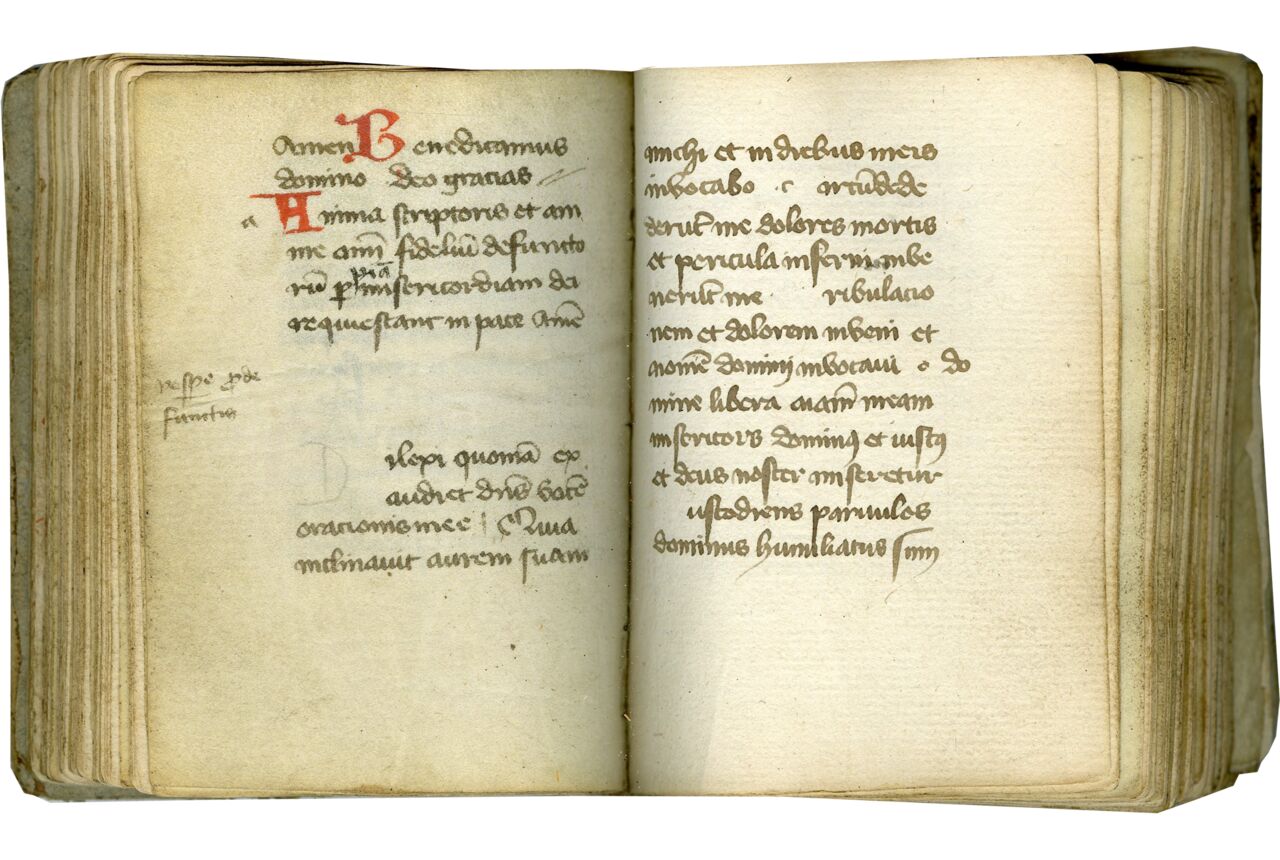 Amen Benedicamus
domino deo gracias
a
Anima scriptoris et am
me aīm fideliū defuncto
rū p piā misericordiam dei
requiescant in pace Amē
vespe de
functis
D
ilexi quoniā ex
audiet dn̄s vocē
oracionis mee Quia
inclinavit aurem suam
michi et in diebus meis
invocabo c ircūdede
derūt me dolores mortis
et pericula inferni inve
nerūt me ribulacio
nem et dolorem inveni et
nomē domini invocavi o do
mine libera aīam meam
misericors dominꝯ et iustꝯ
et deus noster miseretur
ustodiens parvulos
dominus humiliatus sum